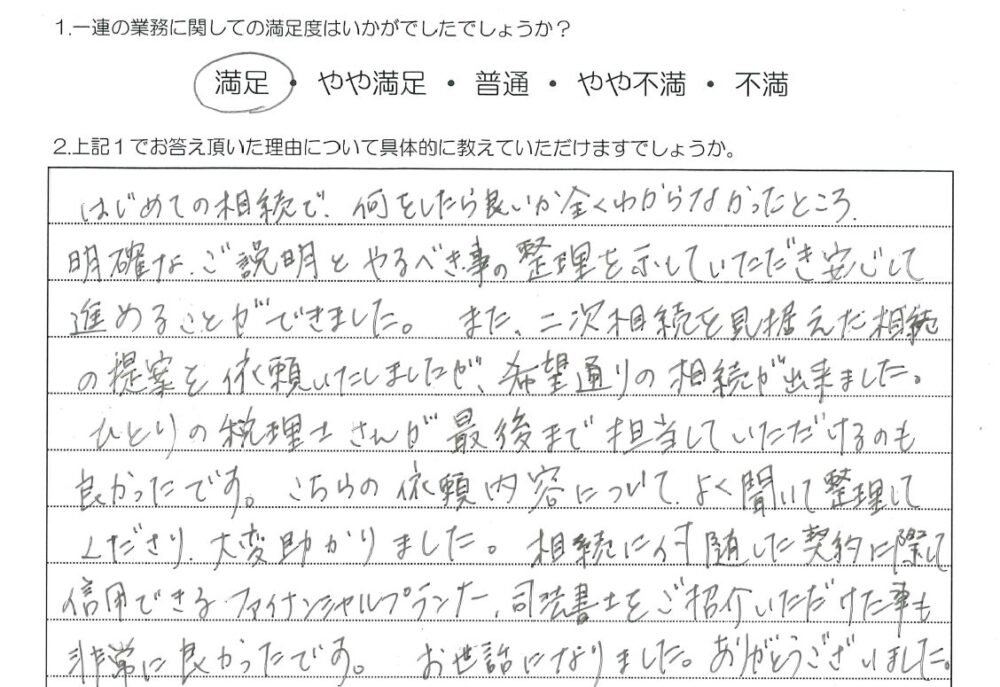 1.一連の業務に関しての満足度はいかがでしたでしょうか？
満足・やや満足・普通・やや不満・不満
2.上記１でお答え頂いた理由について具体的に教えていただけますでしょうか。
はじめての相続で、何をしたら良いか全くわからなかったところ、
明確な、ご説明とやるべき事の整理を示していただき安心して
進めることができました。 また、二次相続を見据えた相続
の提案を依頼いたしましたが、希望通りの相続が出来ました。
ひとりの税理士さんが最後まで担当していただけるのも
良かったです。こちらの依頼内容について、よく聞いて整理して
くださり、大変助かりました。相続に付随した契約に際して
信用できるファイナンシャルプランナー、司法書士をご紹介いただけた事も
非常に良かったです。 お世話になりました。ありがとうございました。